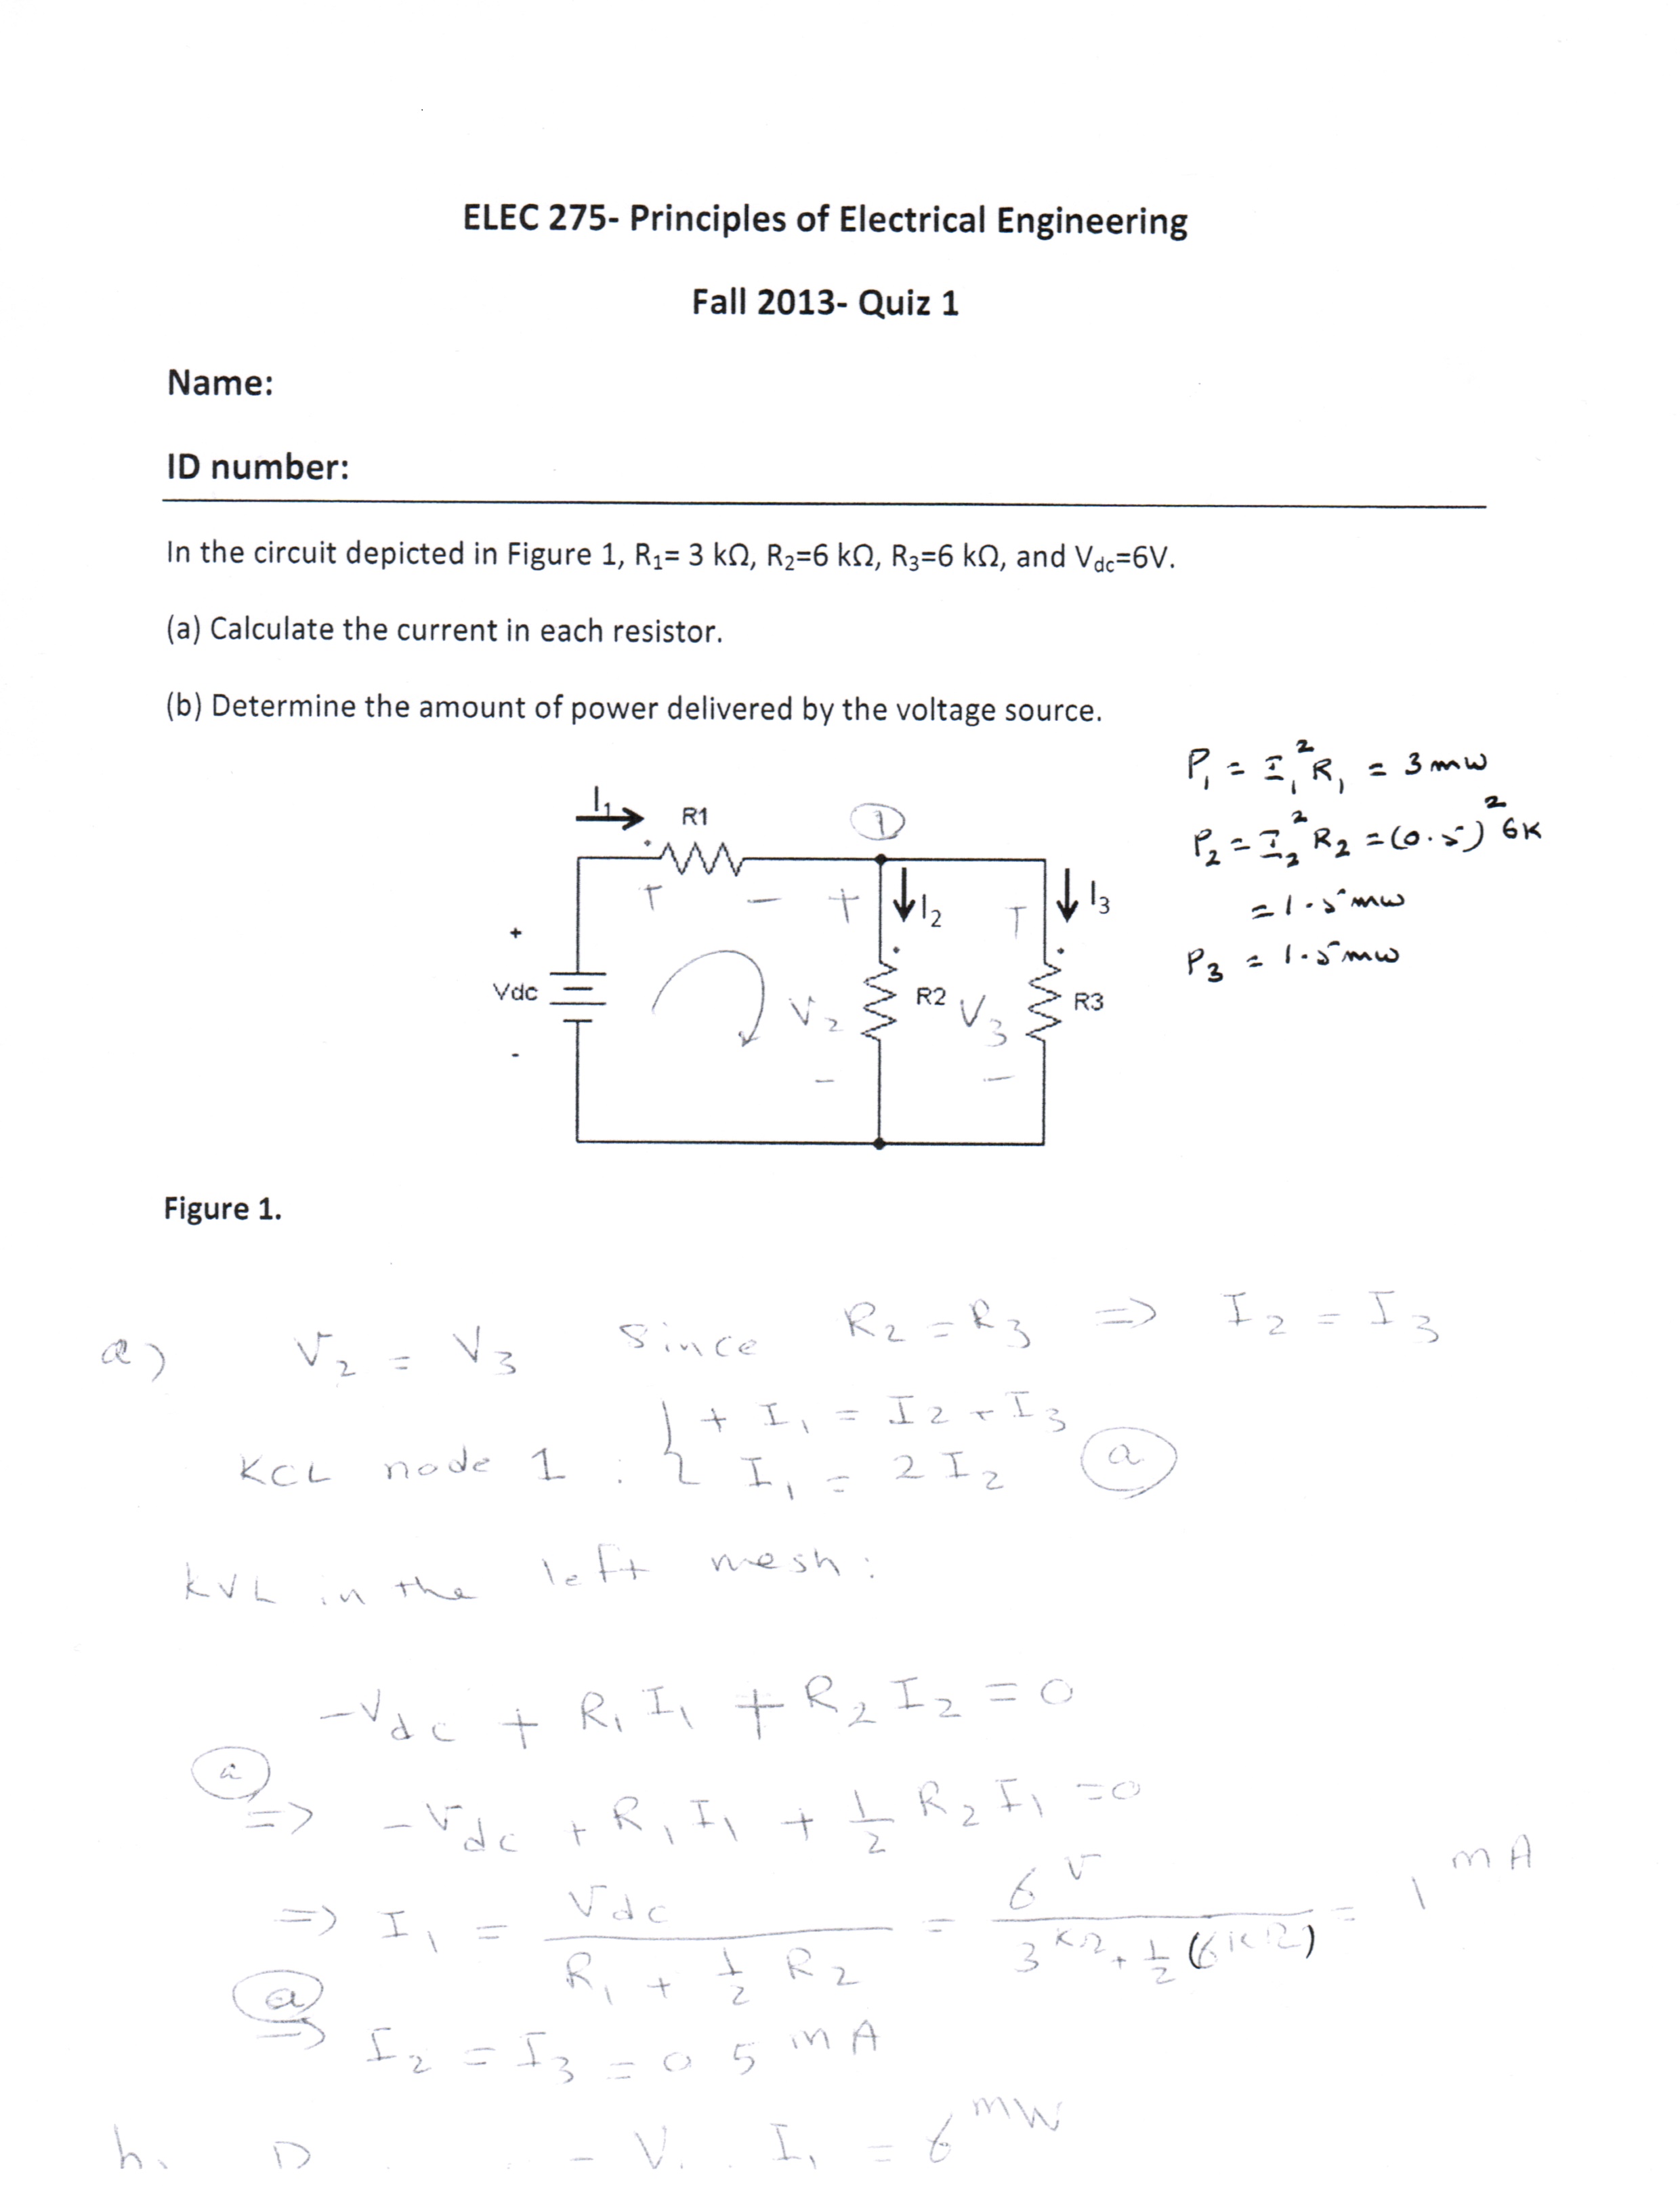 ELEC 275- Principles of Electrical Engineering
Fall 2013- Quiz 1
Name:
ID number:
In the circuit depicted in Figure 1, R₁= 3 kΩ, R₂=6 kΩ, R₃=6 kΩ, and Vdc=6V.
(a) Calculate the current in each resistor.
(b) Determine the amount of power delivered by the voltage source.
P₁ = I₁² R₁ = 3 mw
P₂ = I₂² R₂ = (0.5)² 6K
= 1.5 mw
P₃ = 1.5 mw
I₁ R1 1
+ - + I₂ + I₃
+
Vdc V₂ R2 V₃ R3
- - -
Figure 1.
a) V₂ = V₃ since R₂ = R₃ => I₂ = I₃
+ I₁ = I₂ + I₃
KCL node 1 : { I₁ = 2 I₂ (a)
KVL in the left mesh:
-Vdc + R₁ I₁ + R₂ I₂ = 0
(a) => -Vdc + R₁ I₁ + 1/2 R₂ I₁ = 0
=> I₁ = Vdc / (R₁ + 1/2 R₂) = 6 V / (3 KΩ + 1/2 (6 KΩ)) = 1 mA
(a) => I₂ = I₃ = 0 5 mA
I₁ = 6 mW